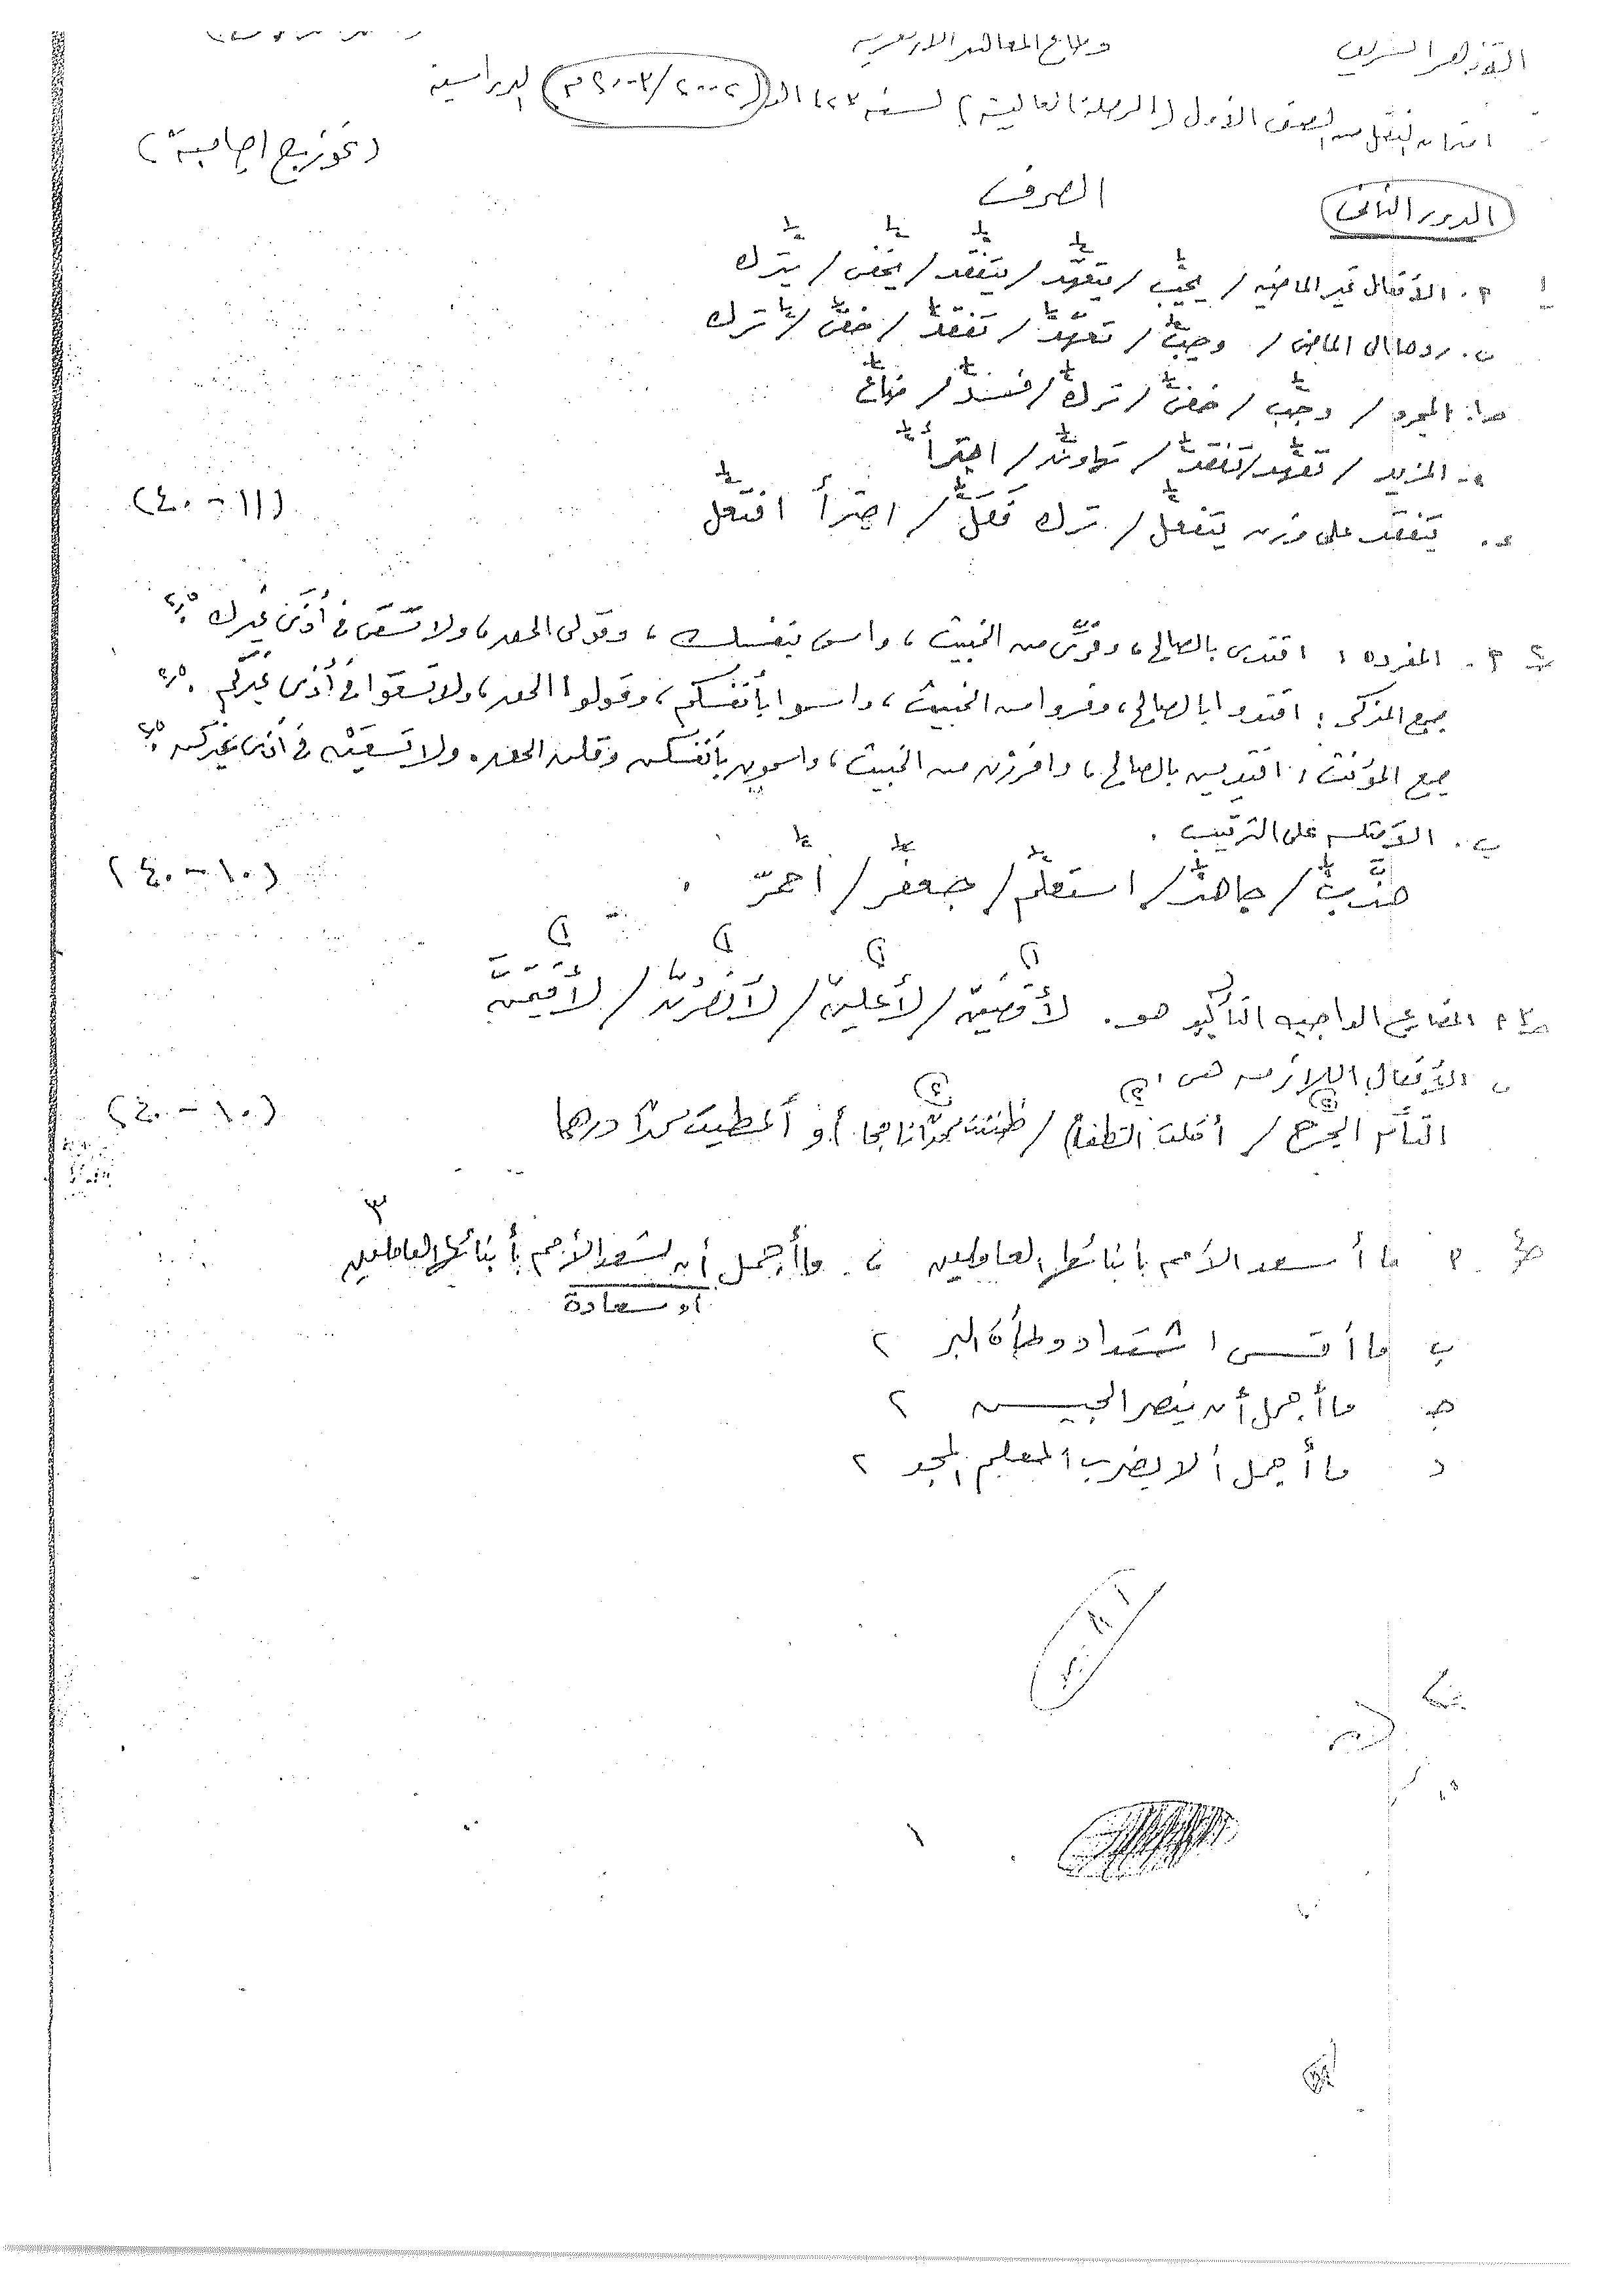 الأزهر الشريف
قطاع المعاهد الأزهرية
امتحان النقل من الصف الأول (المرحلة العالية) لسنة ١٤٢٣ (٢٠٠٢/٢٠٠٣م) الدراسية
(نموذج إجابة)
الصرف
الدور الثاني
١ أ. الأفعال غير الماضية / يجب / يتعهد / يتفقد / يخفى / يترك
ب. ردها إلى الماضي / وجب / تعهد / تفقد / خفى / ترك
جـ. المجرد / وجب / خفى / ترك / فسد / ضاع
د. المزيد / تعهد / تفقد / تهاون / اجترأ
هـ. يتفقد على وزن يتفعل / ترك فَعَلَ / اجترأ افتعل
(١١ - ٤٠)
٢ أ. المفردة: اقتدى بالصالح، وفرِّى من الخبيث، واسمى بنفسك، وقولى الحق، ولا تسعَى فى أذى غيرك
جمع المذكر: اقتدوا بالصالح، وفروا من الخبيث، واسموا بأنفسكم، وقولوا الحق، ولا تسعوا فى أذى غيركم
جمع المؤنث: اقتدين بالصالح، وافررن من الخبيث، واسمون بأنفسكن وقلن الحق. ولا تسعين فى أذى غيركن
ب. الأمثلة على الترتيب.
هذَّب / جاهد / استعلم / جعفر / احمرّ.
(١٠ - ٤٠)
٣ أ المضارع الواجب التأكيد هو. لأقضين / لأعلين / لأنصرن / لأقيمن
ب الأفعال اللازمة هى:
التأم الجرح / أفلت الطفل / ظننت محمدًا ناجحا) أو أعطيت محمدًا درهما
(١٠ - ٤٠)
٤ أ ما أسعد الأمم بأبنائها العاملين، ما أجمل أن تسعد الأمم بأبنائها العاملين ٣
أو سعادة
ب ما أقسى اشتداد وطأة البرد ٢
جـ ما أجمل أن ينصر الجيش ٢
د ما أجمل ألا يضرب المعلم المجد ٢